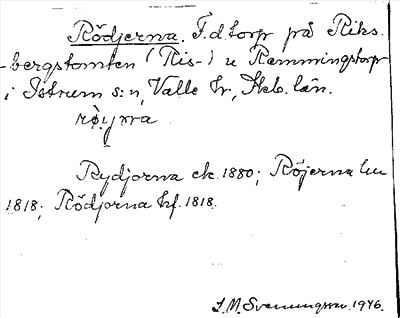 Rödjerna. F.d. torp på Riks-
bergstomten (Ris-) u Remmingstorp
i Istrum s:n, Valle hr, Skb. län.
røyna
Rydjorna ek. 1880; Röjerna hu
1818; Rödjorna hf. 1818.
1946.